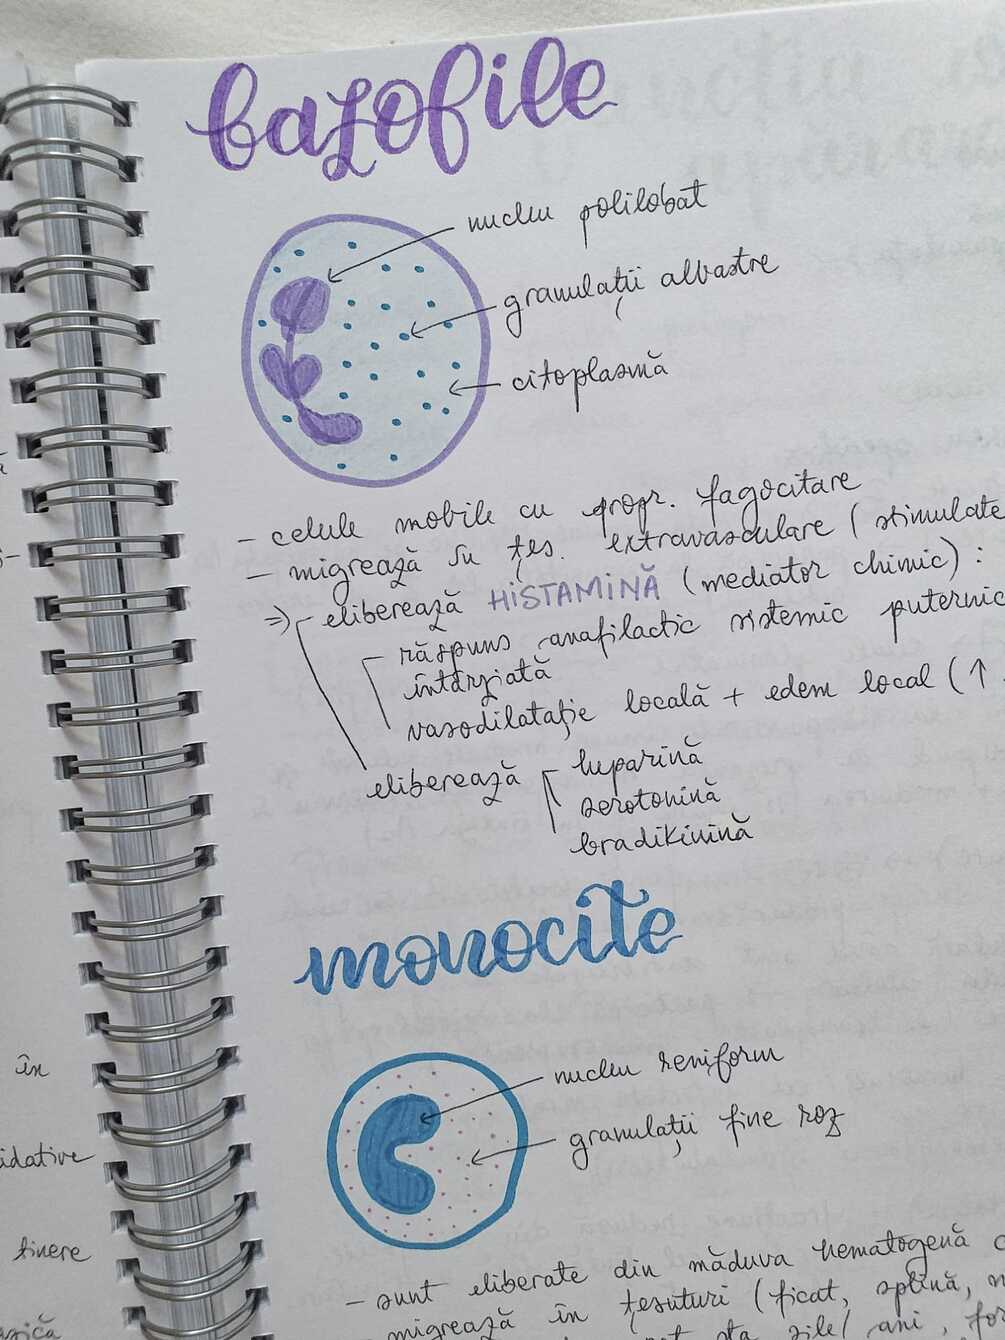 bazofile
nucleu polilobat
granulații albastre
citoplasmă
- celule mobile cu propr. fagocitare
- migrează în țes. extravasculare (stimulate
=> eliberează HISTAMINĂ (mediator chimic) :
răspuns anafilactic sistemic puternic
întârziată
vasodilatație locală + edem local (↑
eliberează
heparină
serotonină
bradikinină
monocite
nucleu reniform
granulații fine roz
în
idative
tinere
- sunt eliberate din măduva hematogenă
migrează în țesuturi (ficat, splină,
sta zile/ ani,